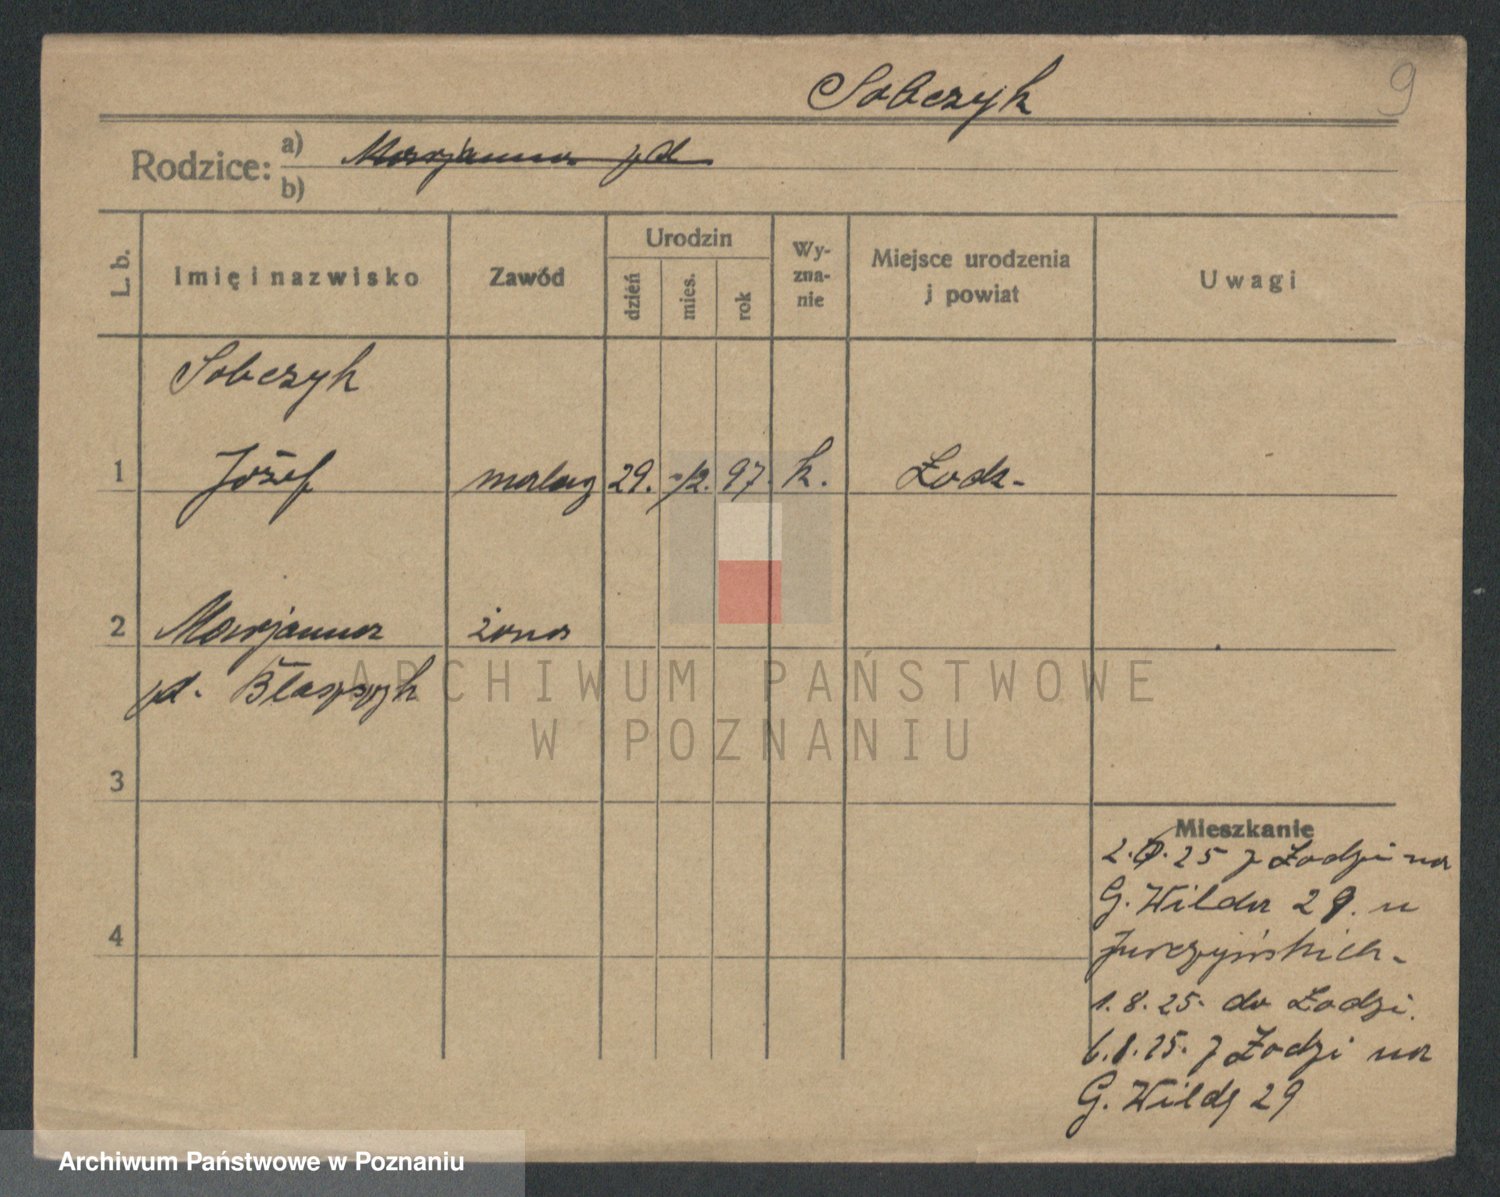 Sobczyk
9
Rodzice:
a) Marjanna zd
b)
L. b.
Imię i nazwisko
Zawód
Urodzin
dzień
mies.
rok
Wy-
zna-
nie
Miejsce urodzenia
i powiat
Uwagi
Sobczyk
1 Józef malarz 29. 12. 97. k. Łódź
2 Marjanna żona
zd. Błaszczyk
3
4
Mieszkanie
25 z Łodzi na
G. Wilda 29. u
Jurczyńskich
1. 8. 25. do Łodzi.
6.8.25. z Łodzi na
G. Wildę 29
ARCHIWUM PAŃSTWOWE
W POZNANIU
Archiwum Państwowe w Poznaniu